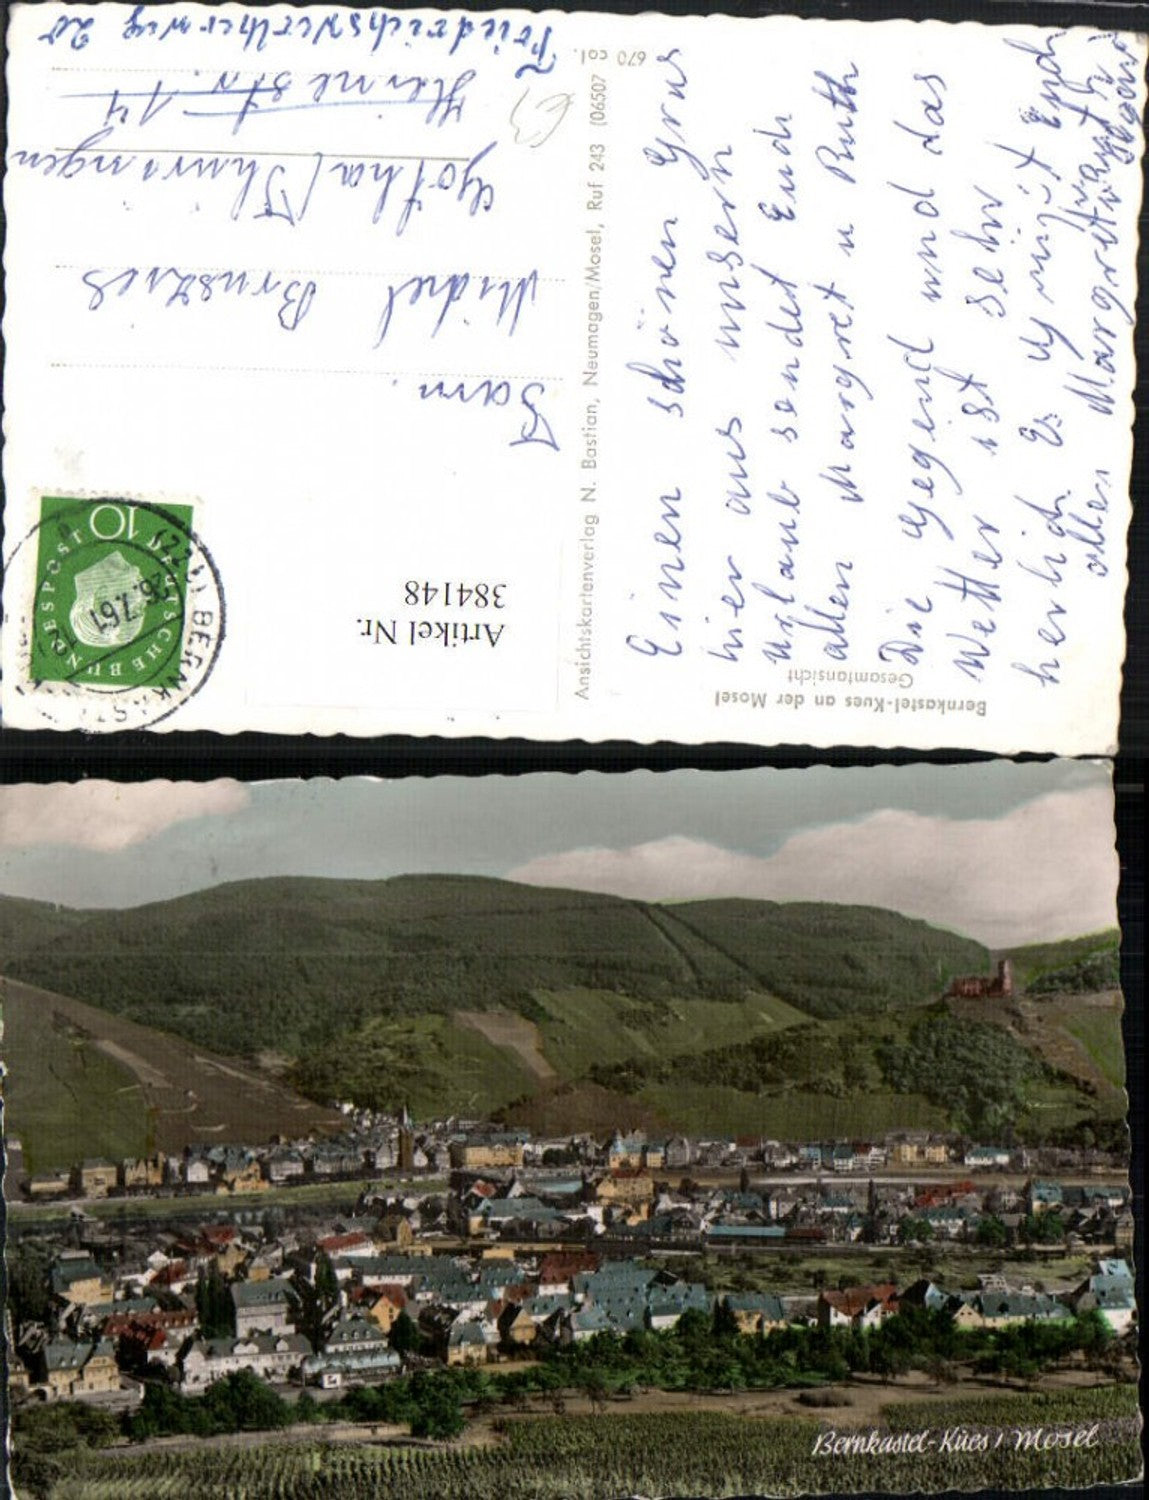 Bernkastel-Kues an der Mosel
Gesamtansicht
Einen schönen Grus
hier aus unsern
Urlaub sendet Euch
allen Margret u Ruth
Die Gegend und das
Wetter ist sehr
herlich Es grüßt Euch
allen Margret
Ansichtskartenverlag N. Bastian, Neumagen/Mosel, Ruf 243 (06507
670 col.
DEUTSCHE BUNDESPOST
10
(22b) BERNKASTEL
26.7.61
Artikel Nr.
384148
Fam.
Michel
Gotha/Thuringen
Heinestr. 14
Friedrichswertherweg 20
Bernkastel-Kües / Mosel